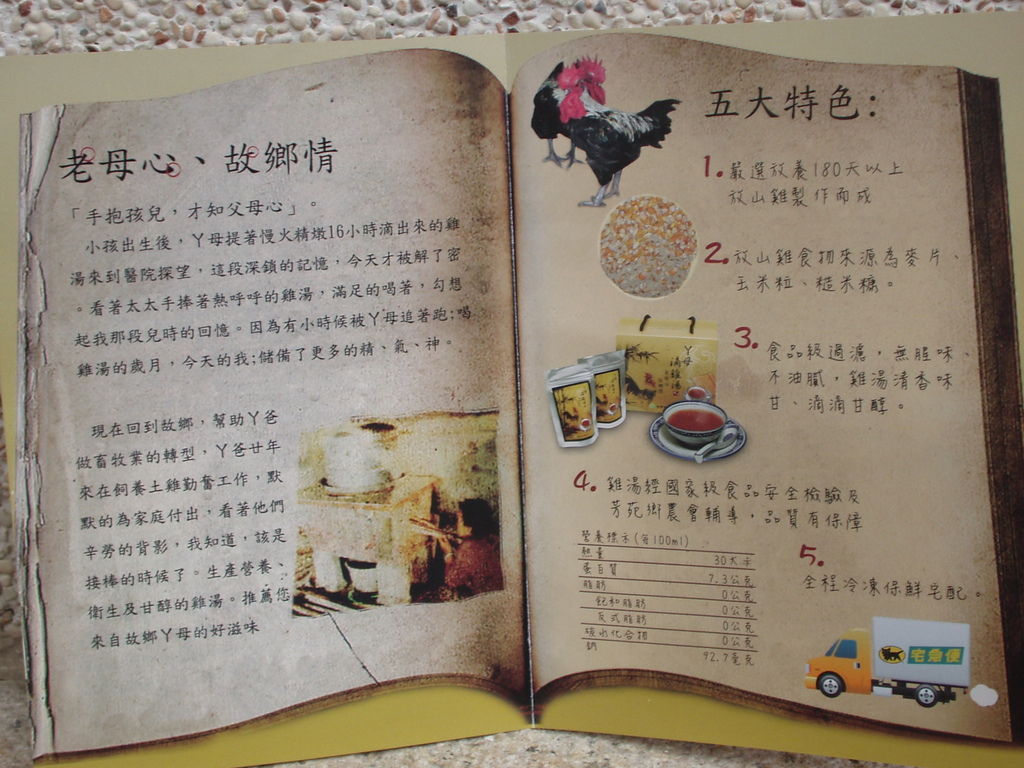 老母心、故鄉情
「手抱孩兒，才知父母心」。
小孩出生後，丫母提著慢火精燉16小時滴出來的雞
湯來到醫院探望，這段深鎖的記憶，今天才被解了密
。看著太太手捧著熱呼呼的雞湯，滿足的喝著，勾想
起我那段兒時的回憶。因為有小時候被丫母追著跑;喝
雞湯的歲月，今天的我;儲備了更多的精、氣、神。
現在回到故鄉，幫助丫爸
做畜牧業的轉型，丫爸廿年
來在飼養土雞勤奮工作，默
默的為家庭付出，看著他們
辛勞的背影，我知道，該是
接棒的時候了。生產營養、
衛生及甘醇的雞湯。推薦您
來自故鄉丫母的好滋味
五大特色：
1.嚴選放養180天以上
放山雞製作而成
2.放山雞食物來源為麥片、
玉米粒、糙米糠。
丫母
滴雞湯
3.食品級過濾，無腥味、
不油膩，雞湯清香味
甘、滴滴甘醇。
4.雞湯經國家級食品安全檢驗及
芳苑鄉農會輔導，品質有保障
營養標示(每100ml)
熱量 30大卡
蛋白質 7.3公克
脂肪 0公克
飽和脂肪 0公克
反式脂肪 0公克
碳水化合物 0公克
鈉 92.7毫克
5.全程冷凍保鮮宅配。
宅急便